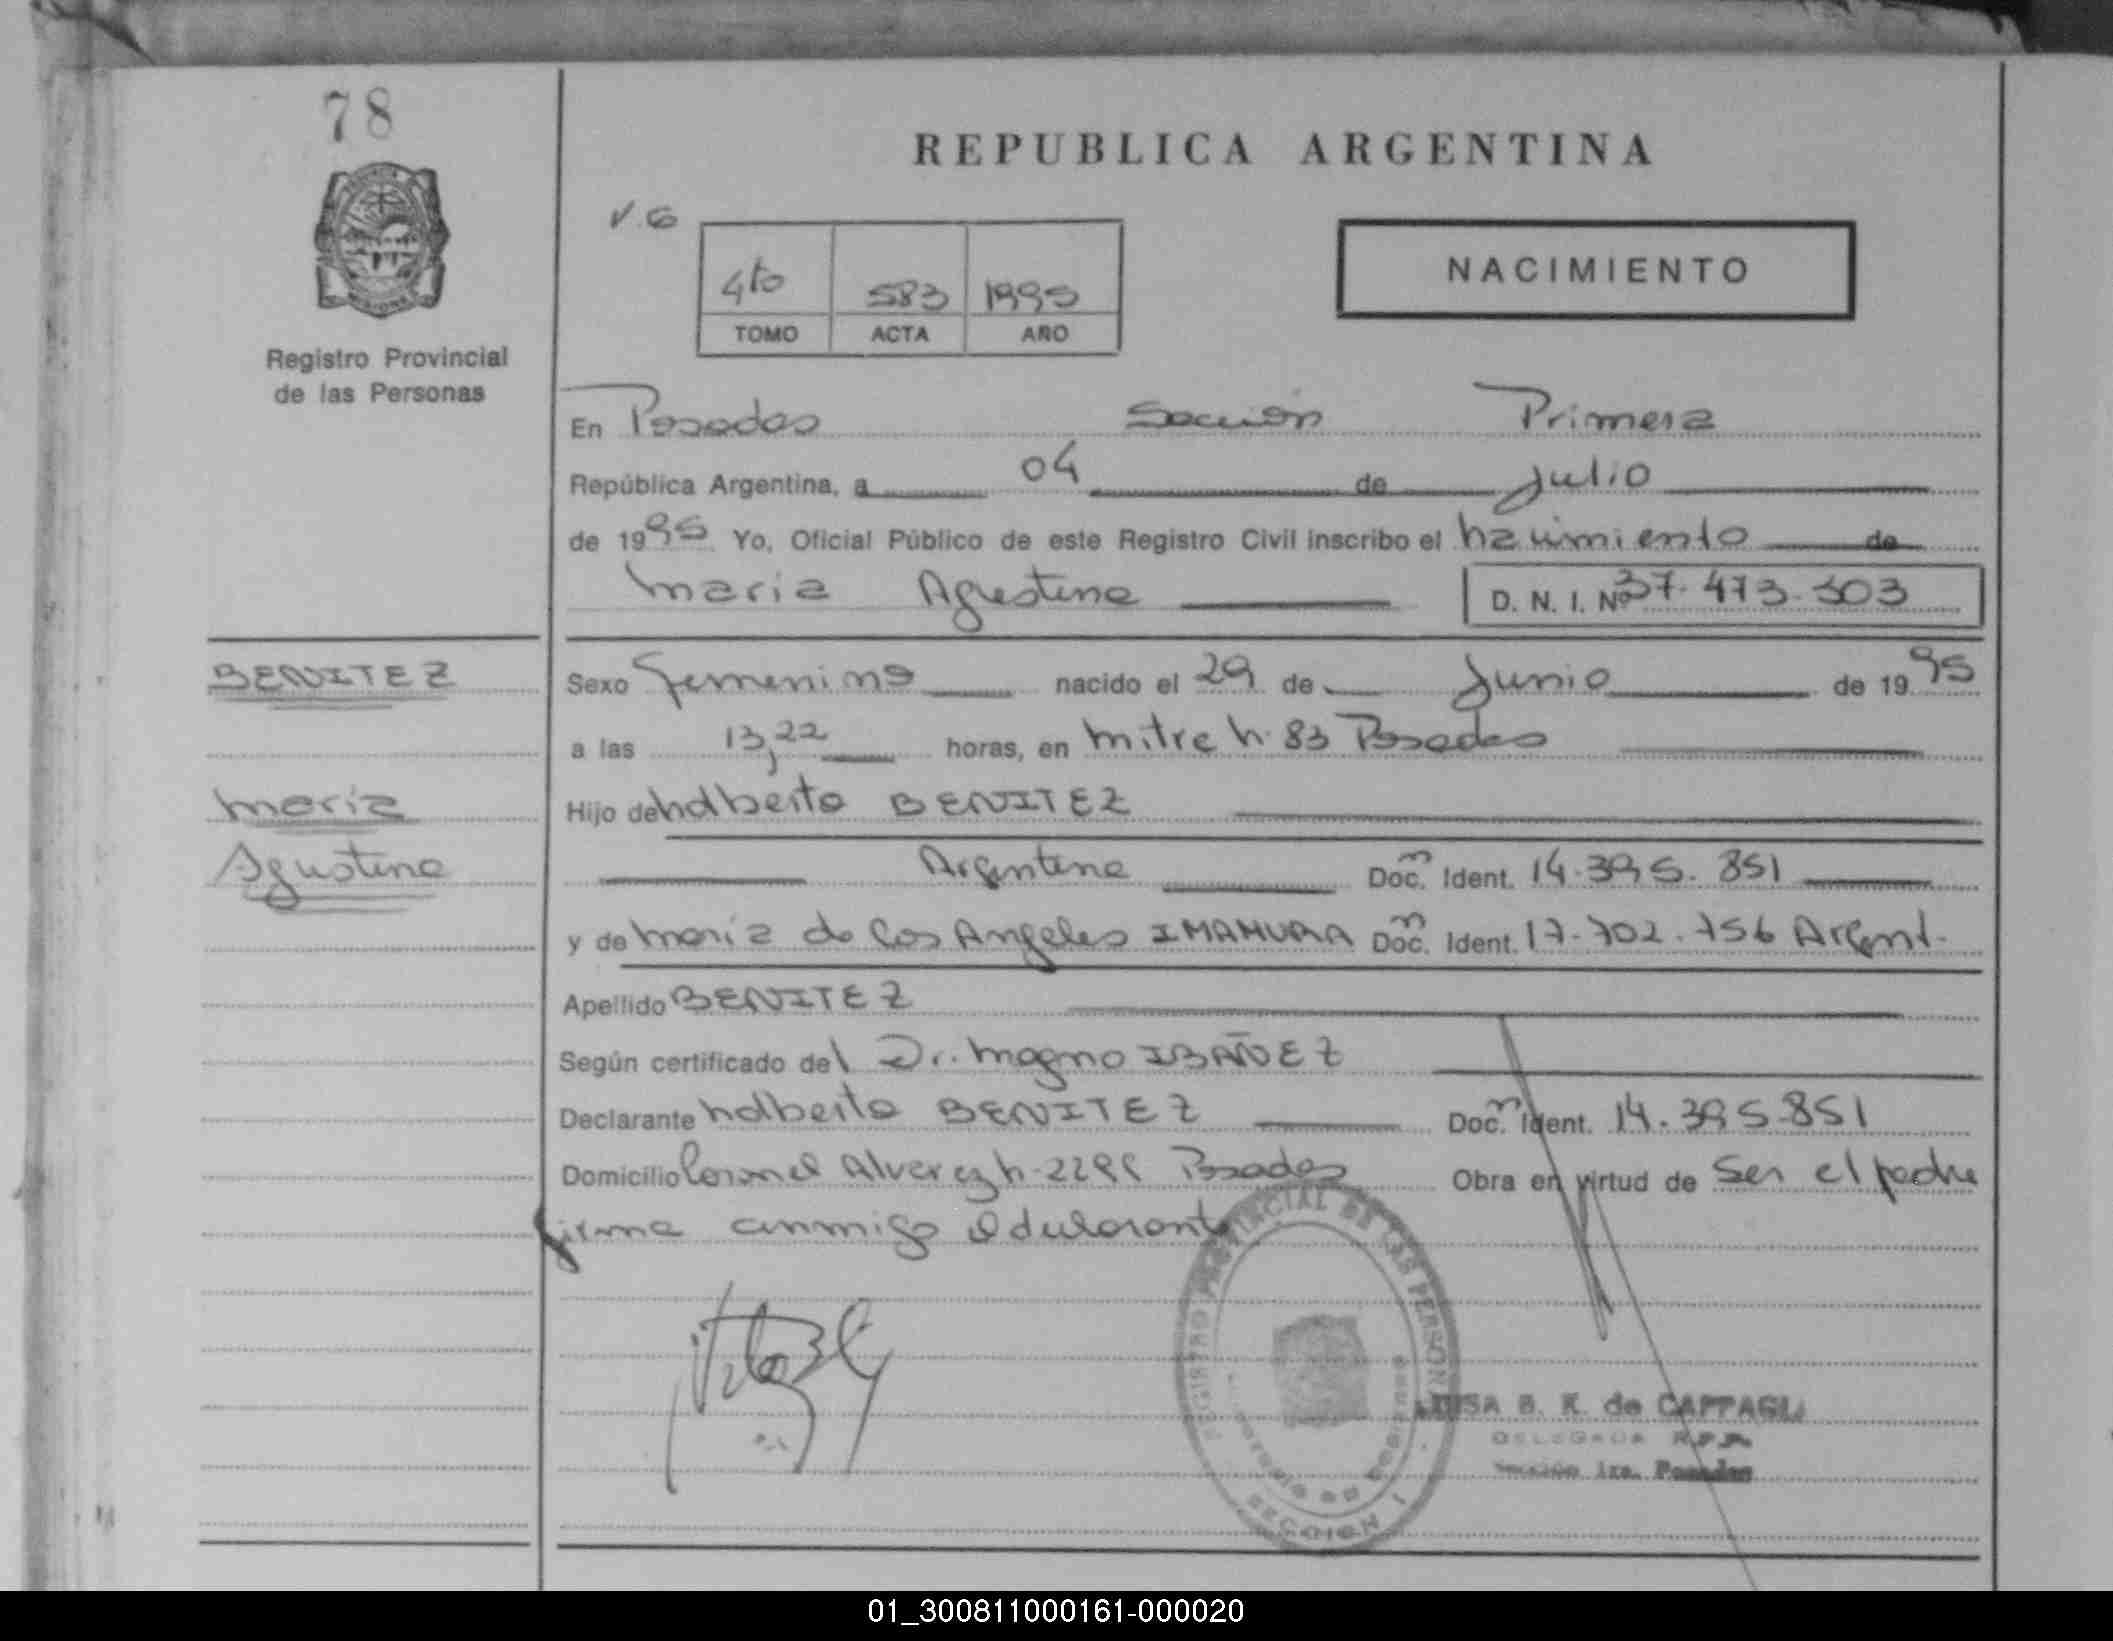 78
REPUBLICA ARGENTINA
V.G
4to 583 1995
TOMO ACTA AÑO
NACIMIENTO
Registro Provincial
de las Personas
En Posadas Sección Primera
República Argentina, a 04 de Julio
de 1995 Yo, Oficial Público de este Registro Civil inscribo el nacimiento de
Maria Agustina D. N. I. Nº 37.473.303
BENITEZ
Maria
Agustina
Sexo Femenino nacido el 29 de Junio de 1995
a las 13,22 horas, en Mitre N. 83 Posadas
Hijo de BENITEZ
Argentina Doc. Ident. 14.395.851
y de Maria de los Angeles IMAMURA Doc. Ident. 17.702.756 Argent.
Apellido BENITEZ
Según certificado del Dr. Magno IBAÑEZ
Declarante BENITEZ Doc. Ident. 14.395.851
Domicilio Coronel Alvarez N. Posadas Obra en virtud de ser el padre
firma conmigo el declarante
REGISTRO PROVINCIAL DE LAS PERSONAS
SECCION I
LUISA B. K. de CAPPAGLI
DELEGADA R.P.P.
Sección 1ra. Posadas
01_300811000161-000020